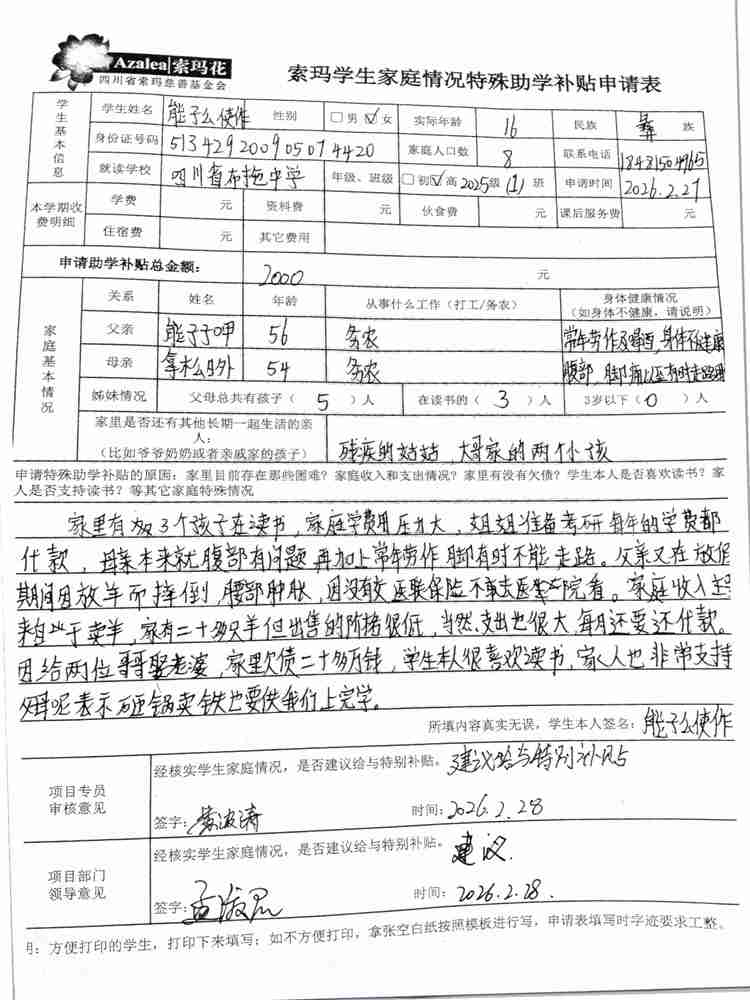 Azalea 索玛花
四川省索玛慈善基金会
索玛学生家庭情况特殊助学补贴申请表
学生基本信息
学生姓名 能子么使作 性别 □男 ☑女 实际年龄 16 民族 彝 族
身份证号码 513429200905074420 家庭人口数 8 联系电话 18481504965
就读学校 四川省布拖中学 年级、班级 □初☑高2025级(1)班 申请时间 2026.2.27
本学期收费明细
学费 元 资料费 元 伙食费 元 课后服务费 元
住宿费 元 其它费用
申请助学补贴总金额: 2000 元
家庭基本情况
关系 姓名 年龄 从事什么工作(打工/务农) 身体健康情况
(如身体不健康,请说明)
父亲 能子子呷 56 务农 常年劳作及喝酒,身体不健康
母亲 拿木么日外 54 务农 腹部,脚痛以至有时走路
姊妹情况 父母总共有孩子( 5 )人 在读书的( 3 )人 3岁以下( 0 )人
家里是否还有其他长期一起生活的亲
人:
(比如爷爷奶奶或者亲戚家的孩子) 残疾的姑姑,大哥家的两个小孩
申请特殊助学补贴的原因:家里目前存在那些困难?家庭收入和支出情况?家里有没有欠债?学生本人是否喜欢读书?家
人是否支持读书?等其它家庭特殊情况
家里有3个孩子在读书,家庭学费用压力大,姐姐准备考研每年的学费都
贷款,母亲本来就腹部有问题再加上常年劳作脚有时不能走路。父亲又在放假
期间因放羊而摔倒,腰部肿胀,因没有交医保保险不敢去医院看。家庭收入
来自于卖羊,家有二十多只羊但出售的价格很低,当然,支出也很大,每月还要还贷款。
因给两位哥哥娶老婆,家里欠债二十多万钱,学生本人很喜欢读书,家人也非常支持
表示砸锅卖铁也要供我们上完学。
所填内容真实无误,学生本人签名: 能子么使作
项目专员
审核意见
经核实学生家庭情况,是否建议给与特别补贴。 建议给与特别补贴
签字: 时间: 2026.2.28
项目部门
领导意见
经核实学生家庭情况,是否建议给与特别补贴。 建议.
签字: 时间: 2026.2.28.
明:方便打印的学生,打印下来填写;如不方便打印,拿张空白纸按照模板进行写,申请表填写时字迹要求工整。